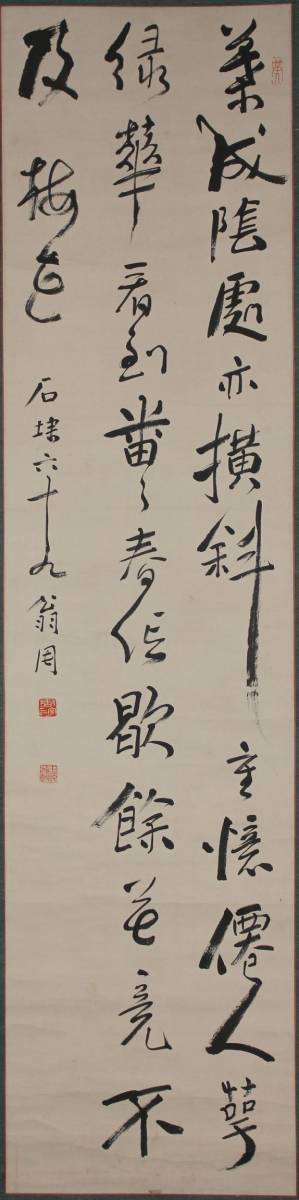 葉成陰處亦横斜重憶僊人萼
綠華看到番〻春信歇餘花竟不
及梅花
石埭六十九翁周